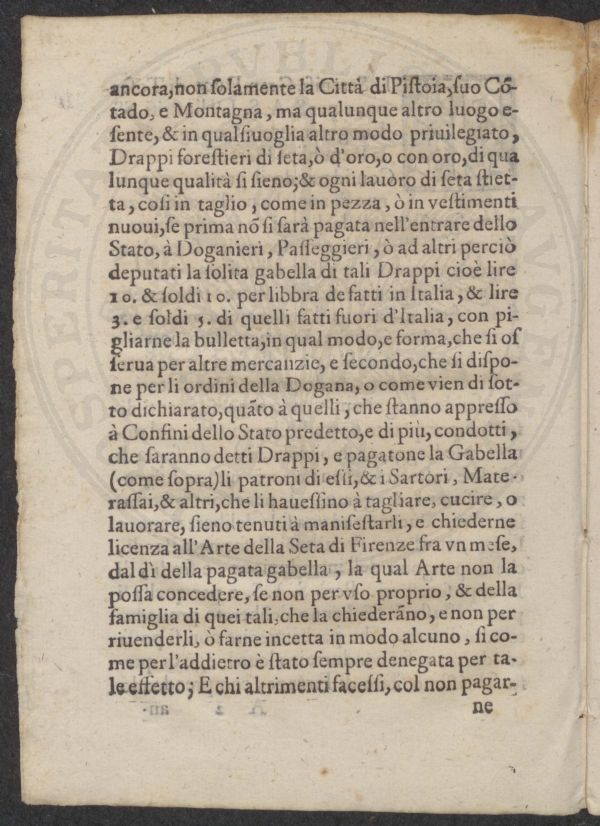 ancora, non ſolamente la Città di Piſtoia, ſuo Cō-
tado, e Montagna, ma qualunque altro luogo e-
ſente, & in qualſiuoglia altro modo priuilegiato,
Drappi foreſtieri di ſeta, ò d'oro, o con oro, di qua
lunque qualità ſi ſieno; & ogni lauoro di ſeta ſtiet-
ta, coſi in taglio, come in pezza, ò in veſtimenti
nuoui, ſe prima nō ſi ſarà pagata nell'entrare dello
Stato, à Doganieri, Paſſeggieri, ò ad altri perciò
deputati la ſolita gabella di tali Drappi cioè lire
10. & ſoldi 10. per libbra de fatti in Italia, & lire
3. e ſoldi 5. di quelli fatti fuori d'Italia, con pi-
gliarne la bulletta, in qual modo, e forma, che ſi oſ
ſerua per altre mercanzie, e ſecondo, che ſi diſpo-
ne per li ordini della Dogana, o come vien di ſot-
to dichiarato, quāto à quelli, che ſtanno appreſſo
à Confini dello Stato predetto, e di più, condotti,
che ſaranno detti Drappi, e pagatone la Gabella
(come ſopra) li patroni di eſſi, & i Sartori, Mate-
raſſai, & altri, che li haueſſino à tagliare, cucire, o
lauorare, ſieno tenuti à manifeſtarli, e chiederne
licenza all'Arte della Seta di Firenze fra vn meſe,
dal dì della pagata gabella, la qual Arte non la
poſſa concedere, ſe non per vſo proprio, & della
famiglia di quei tali, che la chiederāno, e non per
riuenderli, ò farne incetta in modo alcuno, ſi co-
me per l'addietro è ſtato ſempre denegata per ta-
le effetto; E chi altrimenti faceſſi, col non pagar-
ne